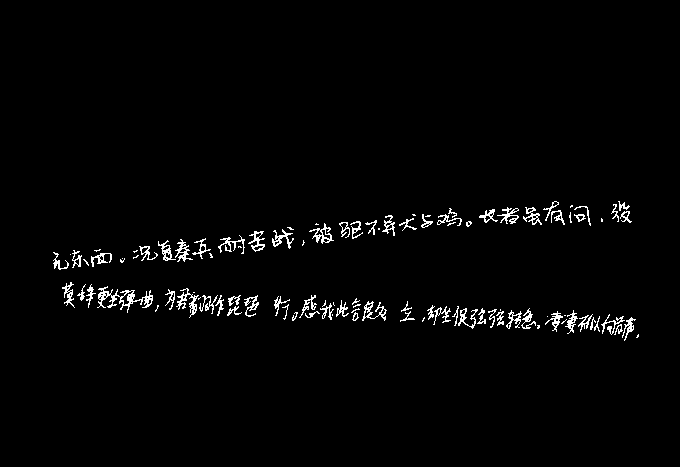 无东西。况复秦兵耐苦战，被驱不异犬与鸡。长者虽有问，役
莫辞更坐弹一曲，为君翻作琵琶行。感我此言良久立，却坐促弦弦转急。凄凄不似向前声，